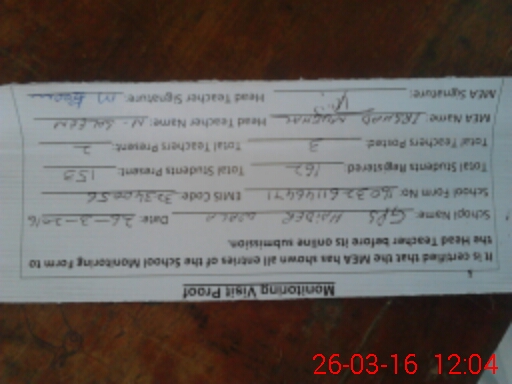 Monitoring Visit Proof
It is certified that the MEA has shown all entries of the School Monitoring Form to
the Head Teacher before its online submission.
School Name: GPS HAIDER WALA Date: 26-3-2016
School Form No: EMIS Code:
Total Students Registered: 162 Total Students Present: 153
Total Teachers Posted: 3 Total Teachers Present: 2
MEA Name: IRSHAD MUGHAL Head Teacher Name: M. SALEEM
MEA Signature: Head Teacher Signature:
26-03-16 12:04